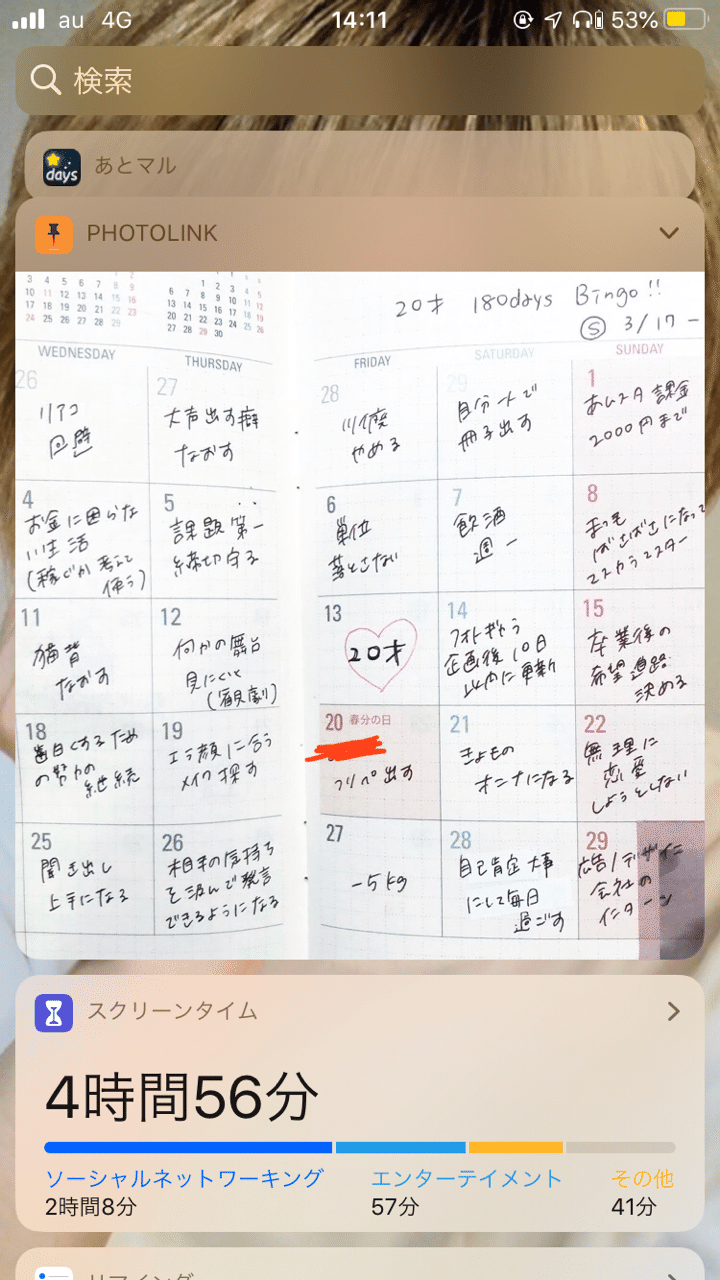 au 4G 14:11 53%
検索
days
あとマル
PHOTOLINK
20才 180days Bingo!!
Ⓢ 3/17 -
WEDNESDAY THURSDAY FRIDAY SATURDAY SUNDAY
26
リアコ
回避
27
大声出す癖
なおす
28
やめる
29
自分1人で
冊子出す
1
あんスタ課金
2000円まで
4
お金に困らな
い生活
(稼ぐか考えて
使う)
5
課題第一
締切守る
6
単位
落とさない
7
飲酒
週一
8
まつげ
ばさばさになって
マスカラマスター
11
猫背
なおす
12
何かの舞台
見にいく
(観劇)
13
20才
14
フォトぎゃう
企画後10日
以内に更新
15
卒業後の
希望進路
決める
18
歯白くするため
の努力の
継続
19
エラ顔に合う
メイク探す
20 春分の日
フリペ出す
21
きょもの
オンナになる
22
無理に
恋愛
しようとしない
25
聞き出し
上手になる
26
相手の気持ち
を汲んで発言
できるようになる
27
-5kg
28
自己肯定大事
にして毎日
過ごす
29
広告/デザイン
会社の
インターン
スクリーンタイム
4時間56分
ソーシャルネットワーキング エンターテイメント その他
2時間8分 57分 41分